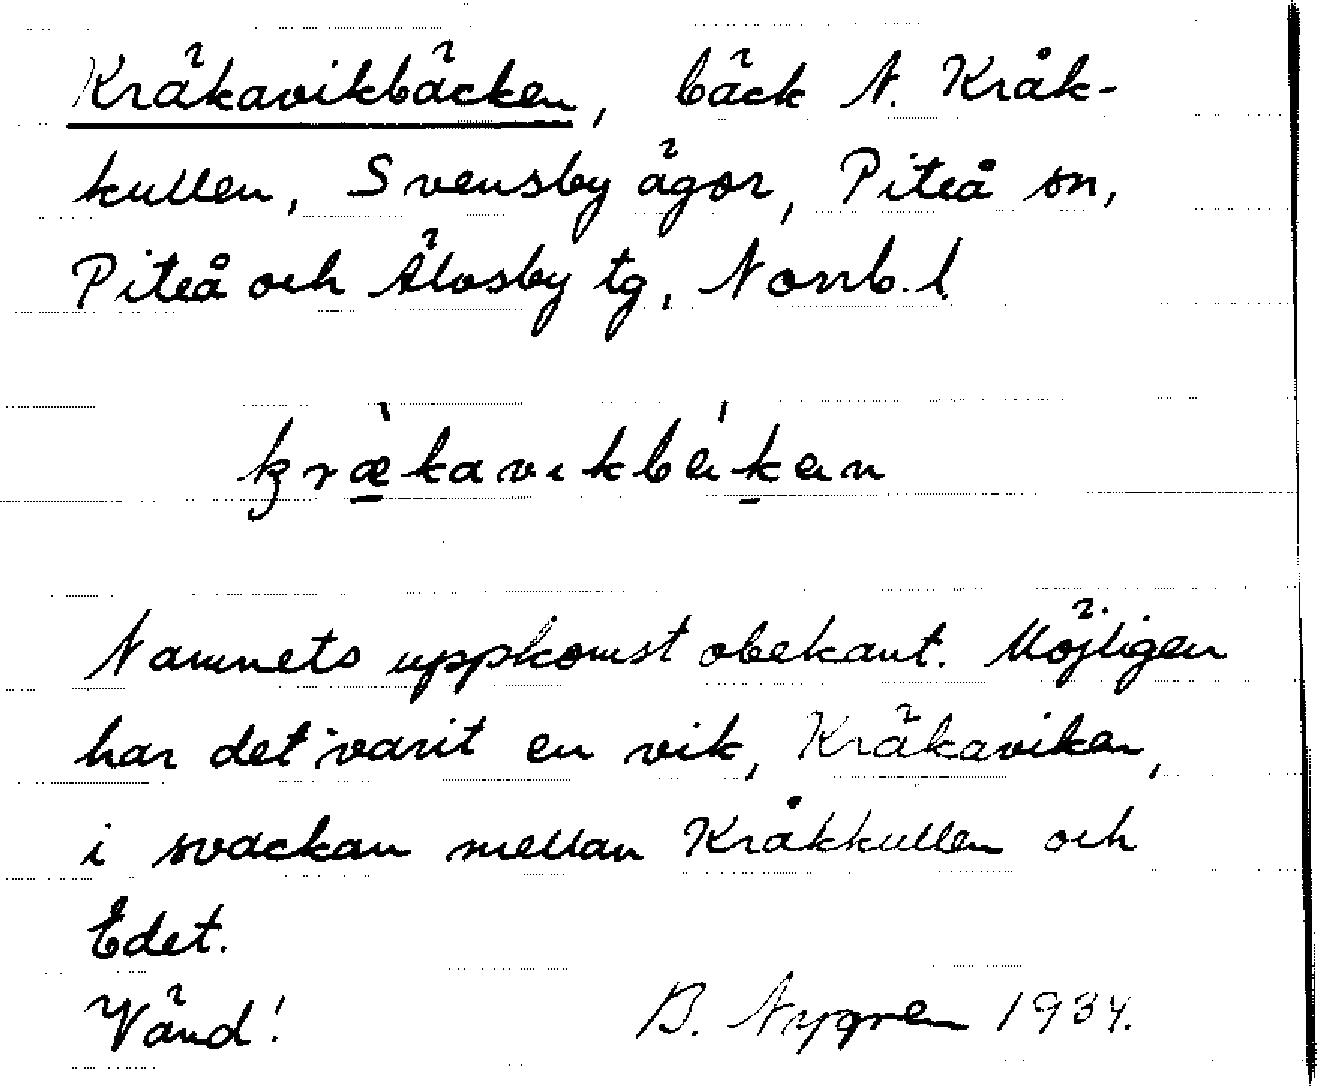 Kräkavikbäcken, bäck N. Kråk-
kullen, Svensby ägor, Piteå sn,
Piteå och Älvsby tg, Norrb. l.
kræ̀kavikbékən
Namnets uppkomst obekant. Möjligen
har det varit en vik, Kräkaviken,
i svackan mellan Kråkkullen och
Edet.
Vänd! B. Nygren 1934.